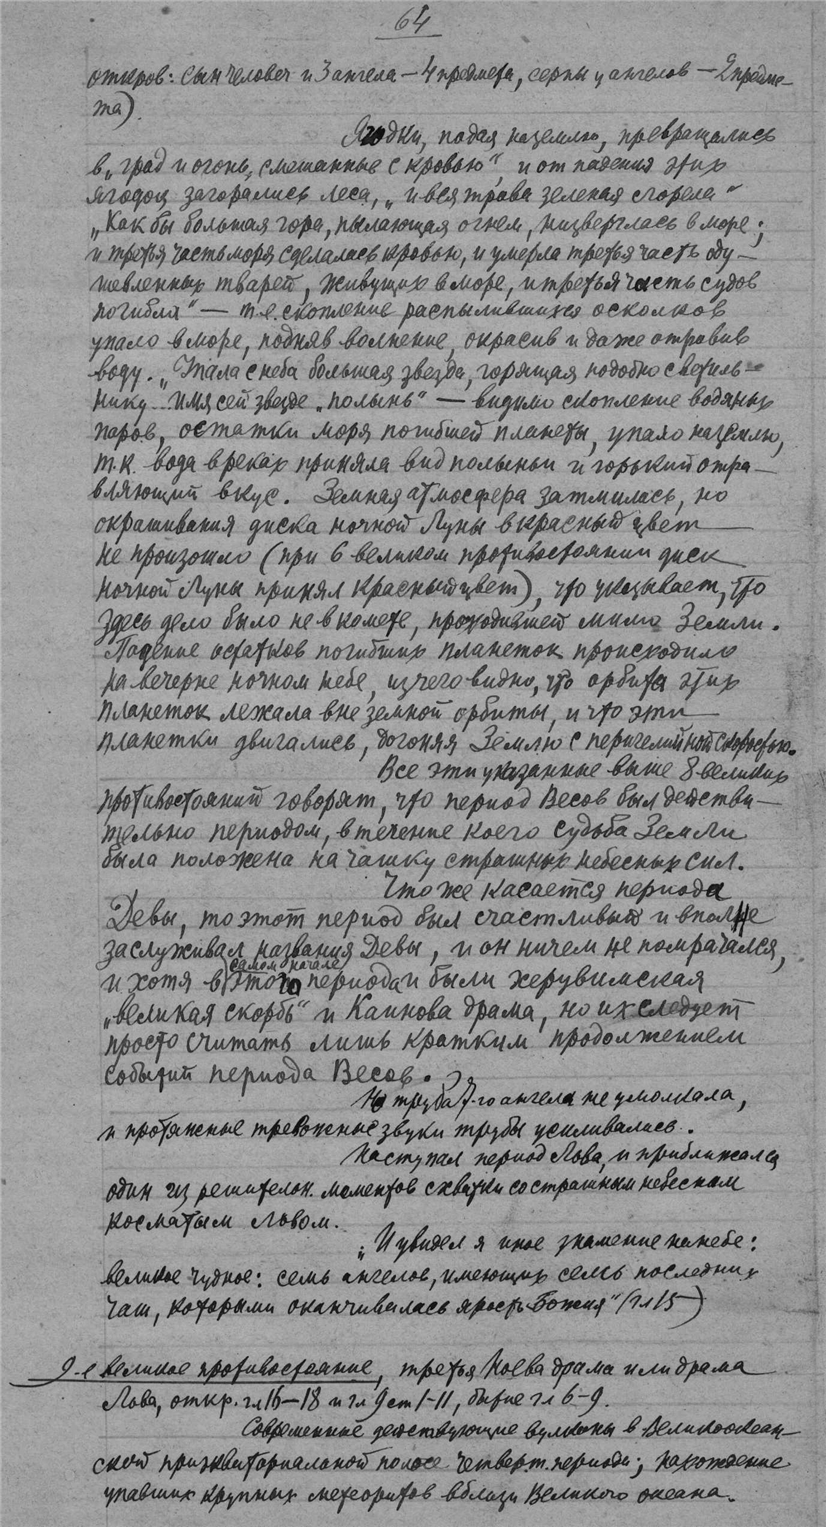 64
откров: сын человеч и 3 ангела — 4 предмета, серпы у ангелов — 2 предме-
та)
Ягодки, падая на землю, превращались
в „град и огонь, смешанные с кровью“, и от падения этих
ягодок загорались леса, „и вся трава зеленая сгорела“
„Как бы большая гора, пылающая огнем, низверглась в море;
и третья часть моря сделалась кровью, и умерла третья часть оду-
шевленных тварей, живущих в море, и третья часть судов
погибла“ — т.е. скопление распылившихся осколков
упало в море, подняв волнение, окрасив и даже отравив
воду. „Упала с неба большая звезда, горящая подобно светиль-
нику... имя сей звезде „полынь“ — видимо скопление водяных
паров, остатки моря погибшей планеты, упало на землю,
т.к. вода в реках приняла вид полыньи и горький отра-
вляющий вкус. Земная атмосфера затмилась, но
окрашивания диска ночной Луны в красный цвет
не произошло (при 6 великом противостоянии диск
ночной Луны принял красный цвет), что указывает, что
здесь дело было не в комете, проходившей мимо Земли.
Падение остатков погибших планеток происходило
на вечерне ночном небе, из чего видно, что орбита этих
планеток лежала вне земной орбиты, и что эти
планетки двигались, догоняя Землю с перигелийной скоростью.
Все эти указанные выше 8 великих
противостояний говорят, что период Весов был действи-
тельно периодом, в течение коего судьба Земли
была положена на чашку страшных небесных сил.
Что же касается периода
Девы, то этот период был счастливый и вполне
заслуживал названия Девы, и он ничем не помрачался,
и хотя в самом начале этого периода и были херувимская
„великая скорбь“ и Каинова драма, но их следует
просто считать лишь кратким продолжением
событий периода Весов.
Но труба 7-го ангела не умолкала,
и протяжные тревожные звуки трубы усиливались.
Наступал период Льва, и приближался
один из решителен. моментов схватки со страшным небесным
косматым Львом.
„И увидел я иное знамение на небе:
великое чудное: семь ангелов, имеющих семь последних
чаш, которыми оканчивалась ярость Божия“ (гл 15)
9-е великое противостояние, третья Ноева драма или драма
Льва, откр. гл 16–18 и гл 9 ст 1–11, бытие гл 6–9.
Современные действующие вулканы в Великоокеан-
ской приэкваториальной полосе четверт. периода; нахождение
упавших крупных метеоритов вблизи Великого океана.